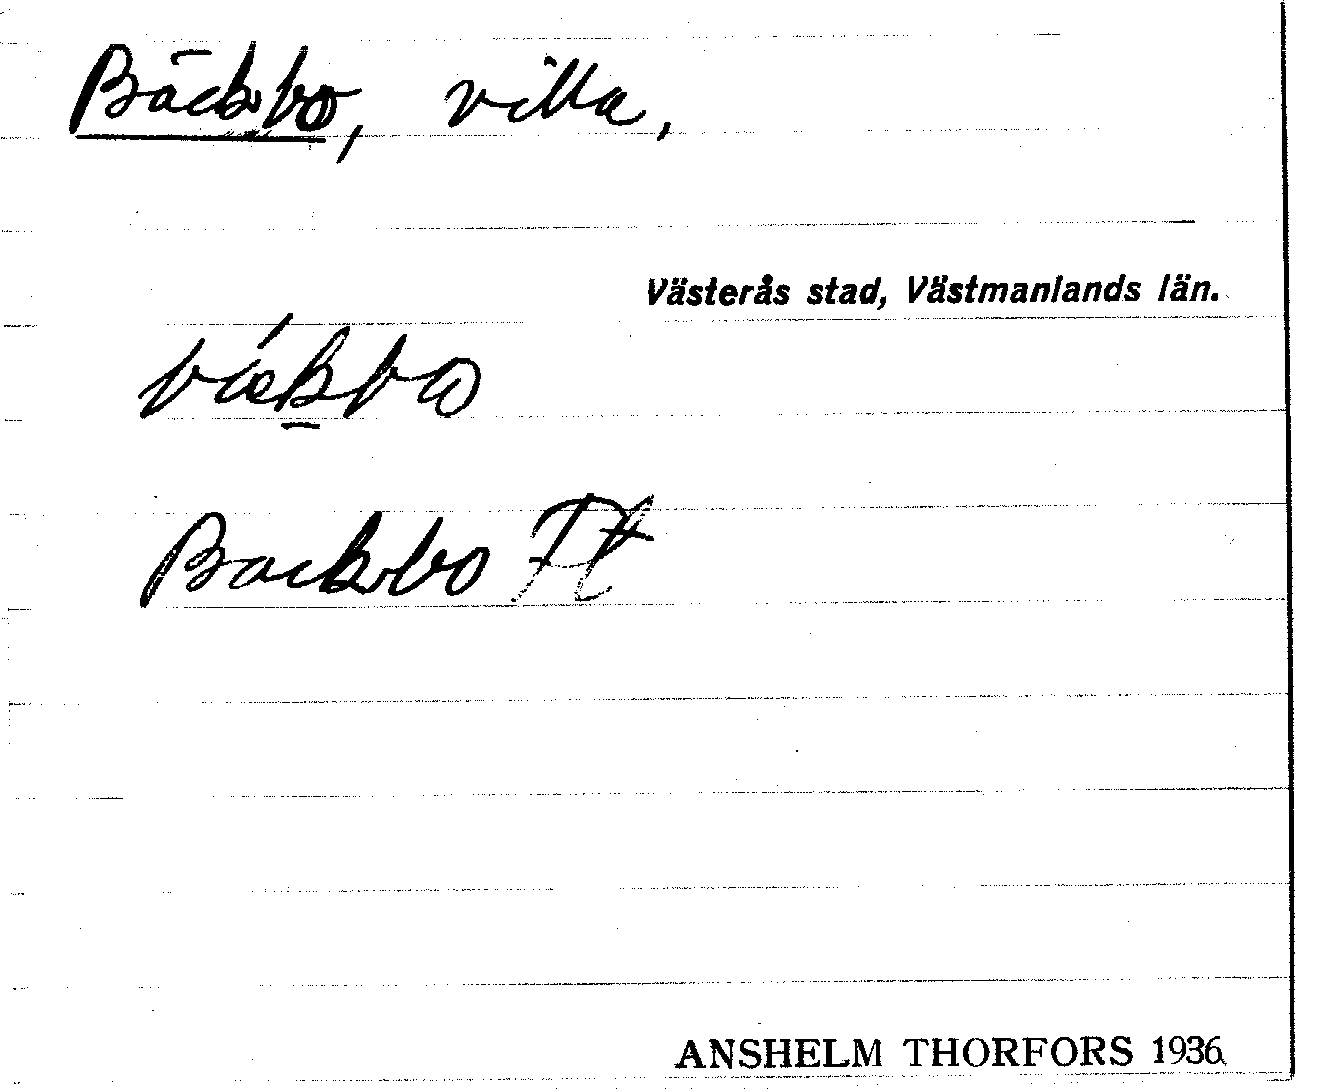 Bäckbo, villa,
Västerås stad, Västmanlands län.
Backbo
ANSHELM THORFORS 1936